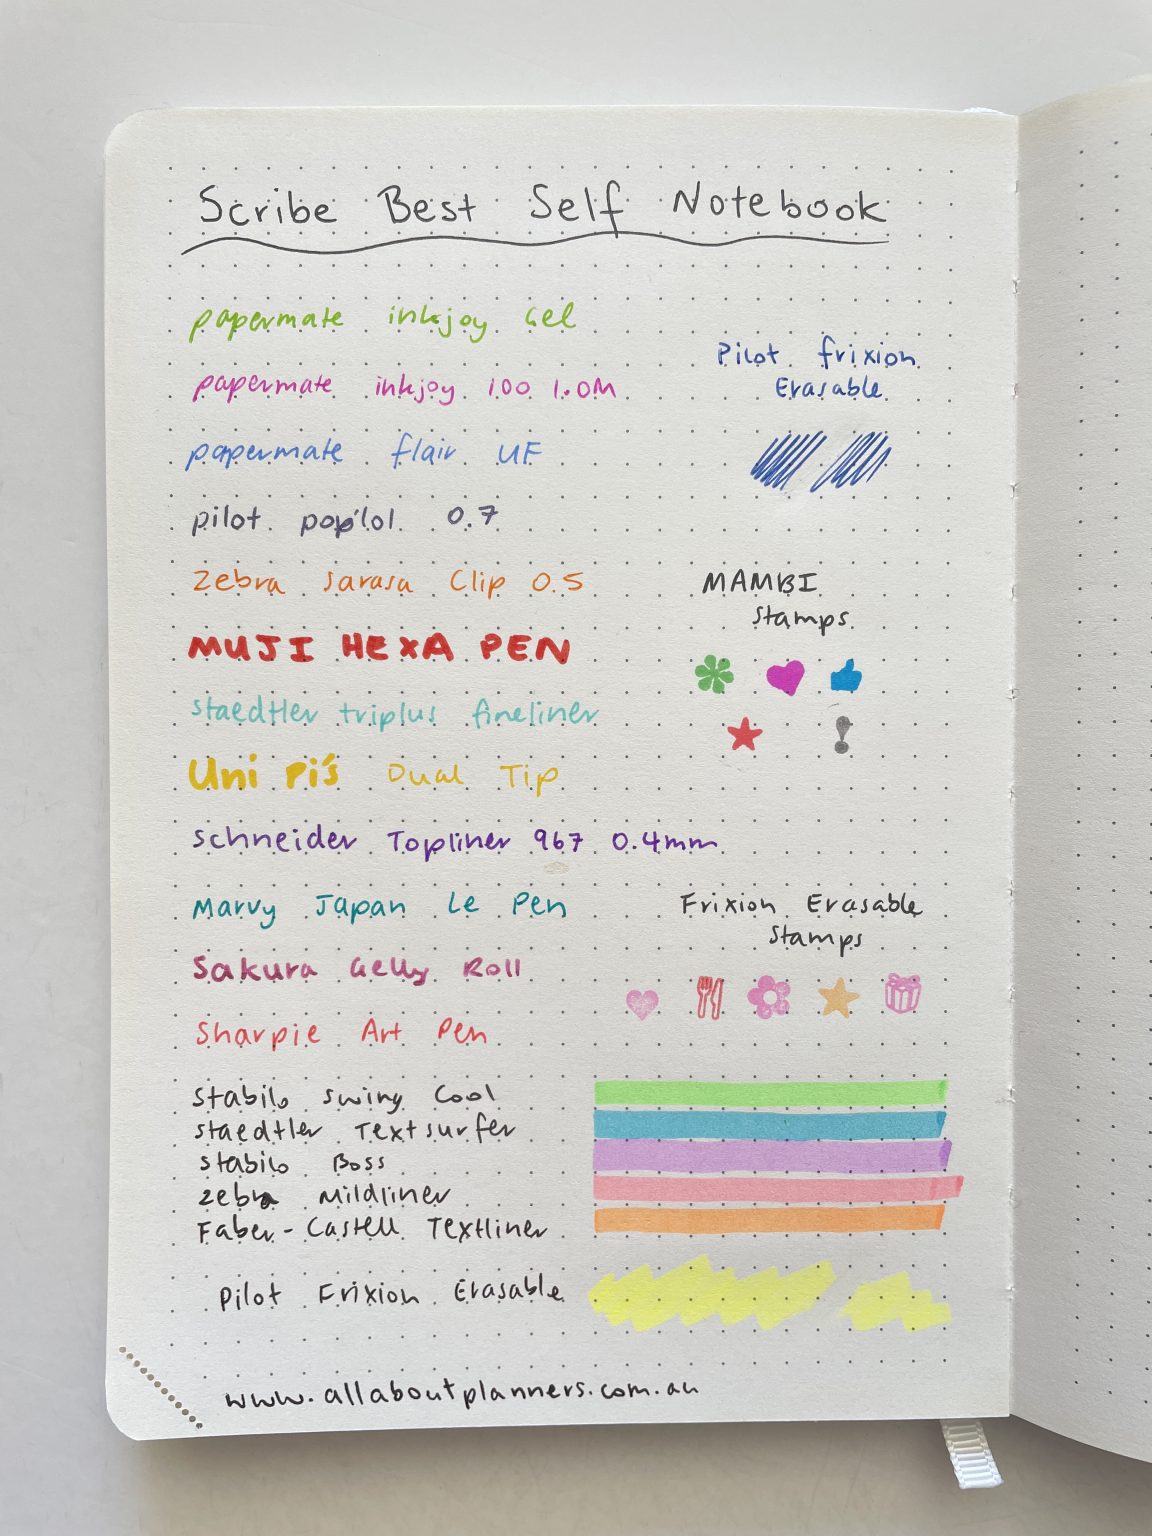 Scribe Best Self Notebook
papermate inkjoy Gel
papermate inkjoy 100 1.0M
papermate flair UF
pilot pop'lol 0.7
Zebra Sarasa Clip 0.5
MUJI HEXA PEN
staedtler triplus fineliner
Uni Pi's Dual Tip
Schneider Topliner 967 0.4mm
Marvy Japan Le Pen
Sakura Gelly Roll
Sharpie Art Pen
Pilot frixion
Erasable
MAMBI
Stamps
Frixion Erasable
Stamps
Stabilo Swing Cool
staedtler Textsurfer
stabilo Boss
zebra Mildliner
Faber-Castell Textliner
Pilot Frixion Erasable
www.allaboutplanners.com.au